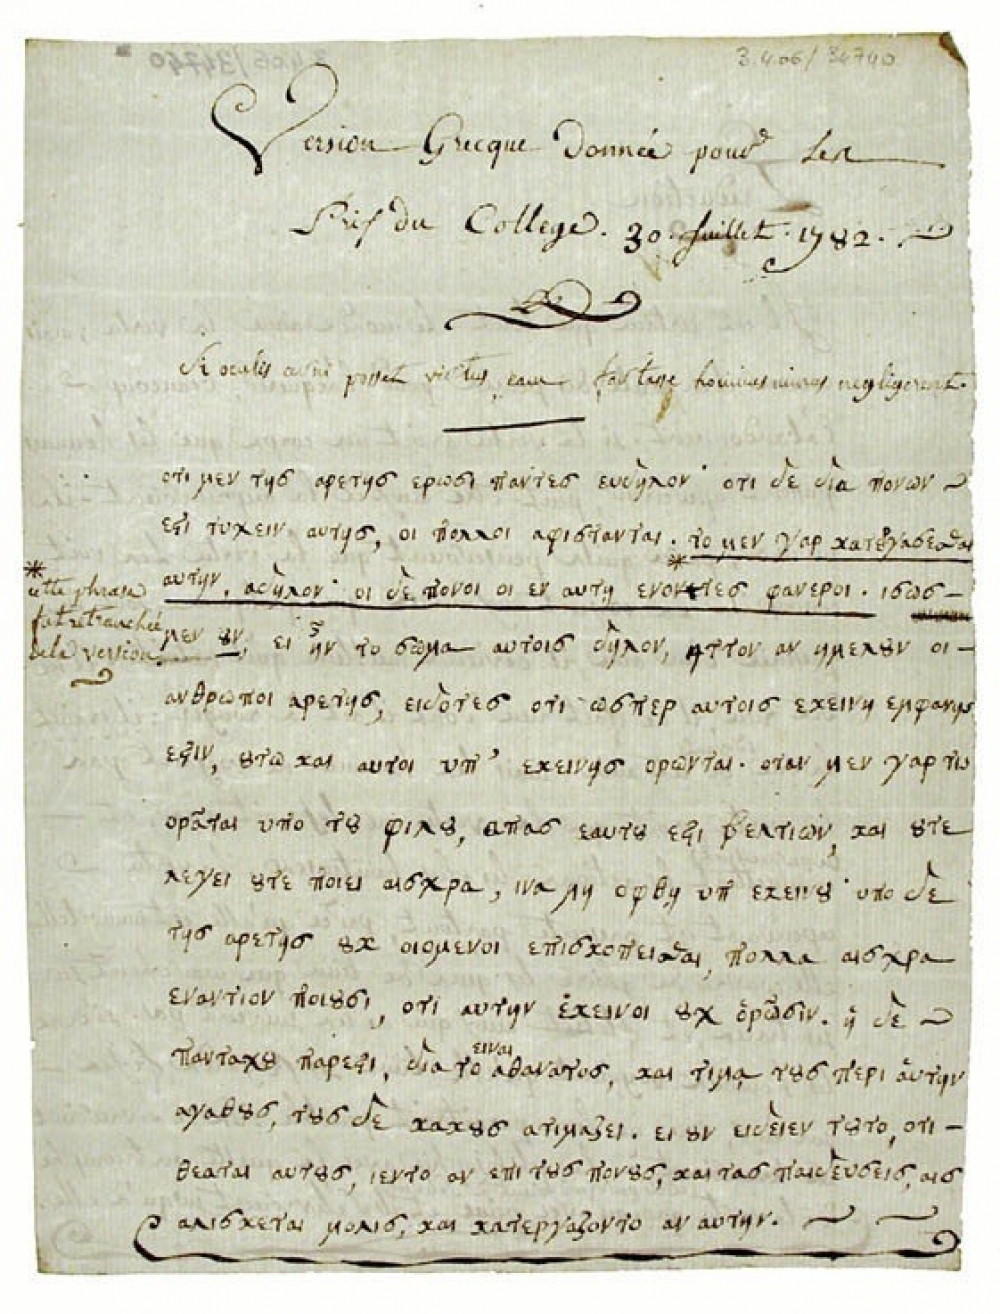 3.406/34740
Version Grecque donnée pour les
Prix du College. 30 Juillet. 1782.
Si oculis cerni posset virtus, eam fortasse homines minus negligerent.
οτι μεν της αρετης ερωσι παντες ευδηλον· οτι δε δια πονων
εϛι τυχειν αυτης, οι πολλοι αφιστανται. το μεν γαρ κατεργασεσθαι
αυτην, αδηλον· οι δε πονοι οι εν αυτη ενοντες φανεροι. * ισως –
μεν ȣν, ει ην το σωμα αυτοις δηλον, ηττον αν ημελȣν οι –
ανθρωποι αρετης, ειδοτες οτι ωσπερ αυτοις εκεινη εμφανης
εϛιν, ȣτω και αυτοι υπ' εκεινης ορωνται. οταν μεν γαρ τις
ορᾶται υπο τȣ φιλȣ, απας εαυτȣ εϛι βελτιων, και ȣτε
λεγει ȣτε ποιει αισχρα, ινα μη οφθη υπ' εκεινȣ· υπο δε
της αρετης ȣκ οιομενοι επισκοπεισθαι, πολλα αισχρα
εναντιον ποιȣσι, οτι αυτην ἐκεινοι ȣχ ὁρῶσιν. ἡ δε
πανταχȣ παρεϛι, δια το ειναι αθανατος, και τιμᾳ τȣς περι αὑτην
αγαθȣς, τȣς δε κακȣς ατιμαζει. ει ȣν ειδειεν τȣτο, οτι –
θεαται αυτȣς, ιεντο αν επι τȣς πονȣς, και τας παιδευσεις, αις
αλισκεται μολις, και κατεργαζοντο αν αυτην.
* cette phrase
fut retranchée
de la version